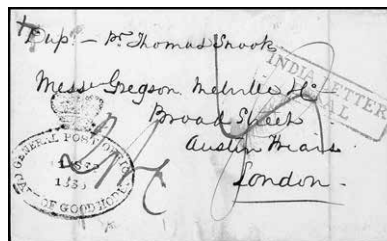 Pr Thomas Snook
Messrs Gregson Melville & Co
Broad Street
Austin Friars
London.
INDIA LETTER
GENERAL POST OFFICE
CAPE OF GOOD HOPE